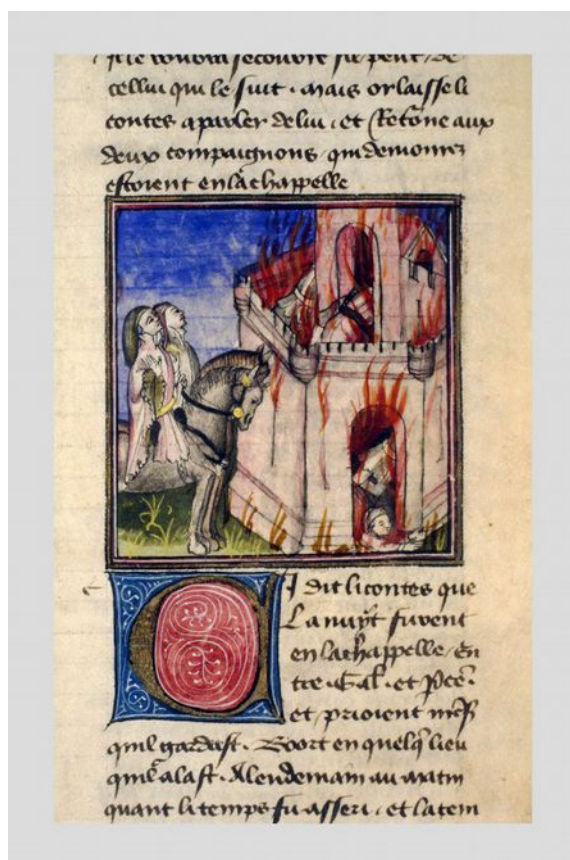 cellui qui le suit. Mais or laisse li
contes a parler de lui. et Retõne aux
deux compaignons qui demourez
estoient en la chappelle
Cİ dit li contes que
La nuyt furent
en la chappelle. En
tre. Gal. et Pce.
et prioient
quil gardast. Boort en quelq̃ lieu
quil alast. A lendemain au matin
quant li temps fu asseri. et la tem